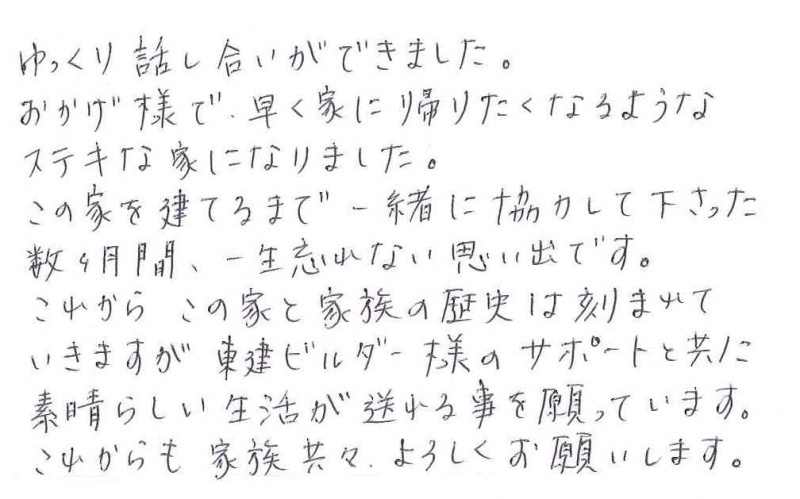 ゆっくり話し合いができました。
おかげ様で、早く家に帰りたくなるような
ステキな家になりました。
この家を建てるまで一緒に協力して下さった
数ヶ月間、一生忘れない思い出です。
これから この家と家族の歴史は刻まれて
いきますが 東建ビルダー様のサポートと共に
素晴らしい生活が送れる事を願っています。
これからも 家族共々、よろしくお願いします。